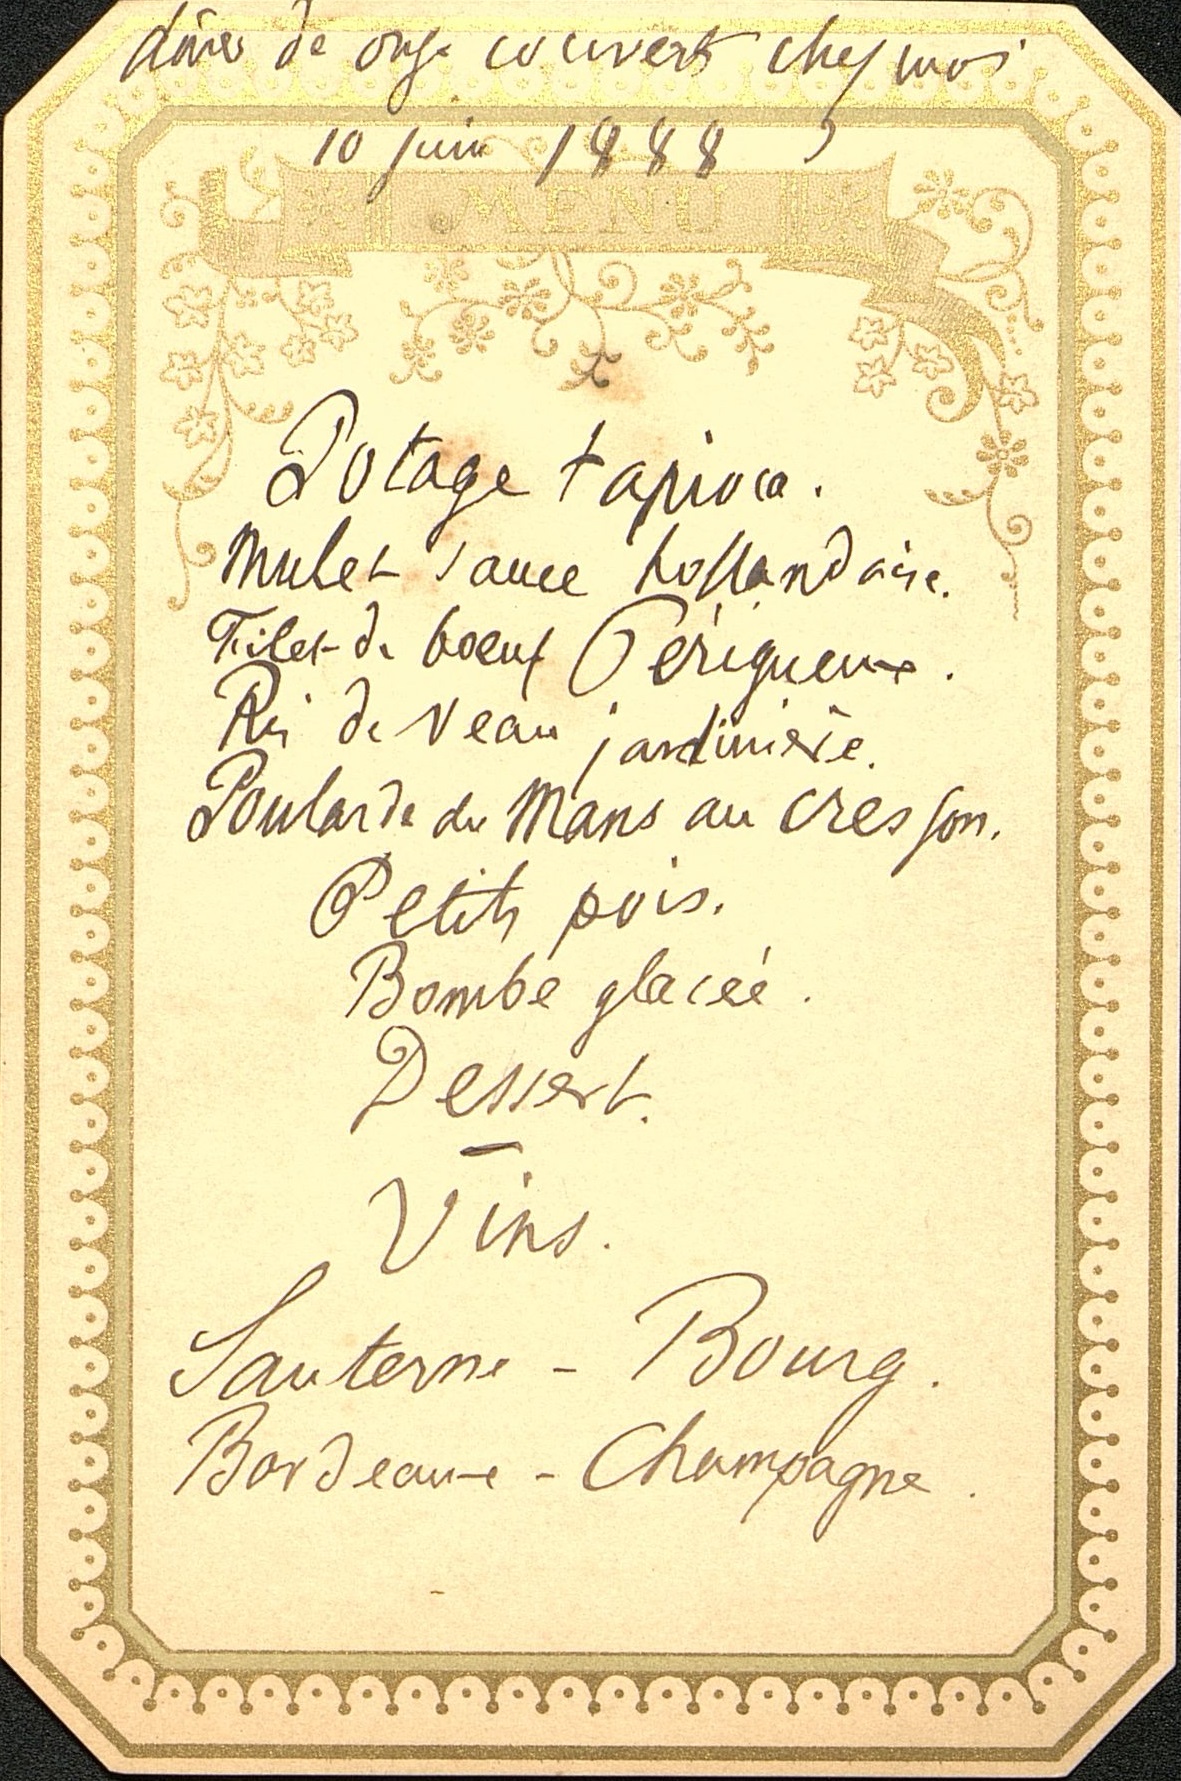 dîner de onze couverts chez moi
10 juin 1888
MENU
Potage tapioca.
Mulet sauce hollandaise.
Filet de boeuf Périgueux.
Ris de veau jardinière.
Poularde du Mans au cresson.
Petits pois.
Bombe glacée.
Dessert.
Vins.
Sauterne - Bourg.
Bordeaux - Champagne.